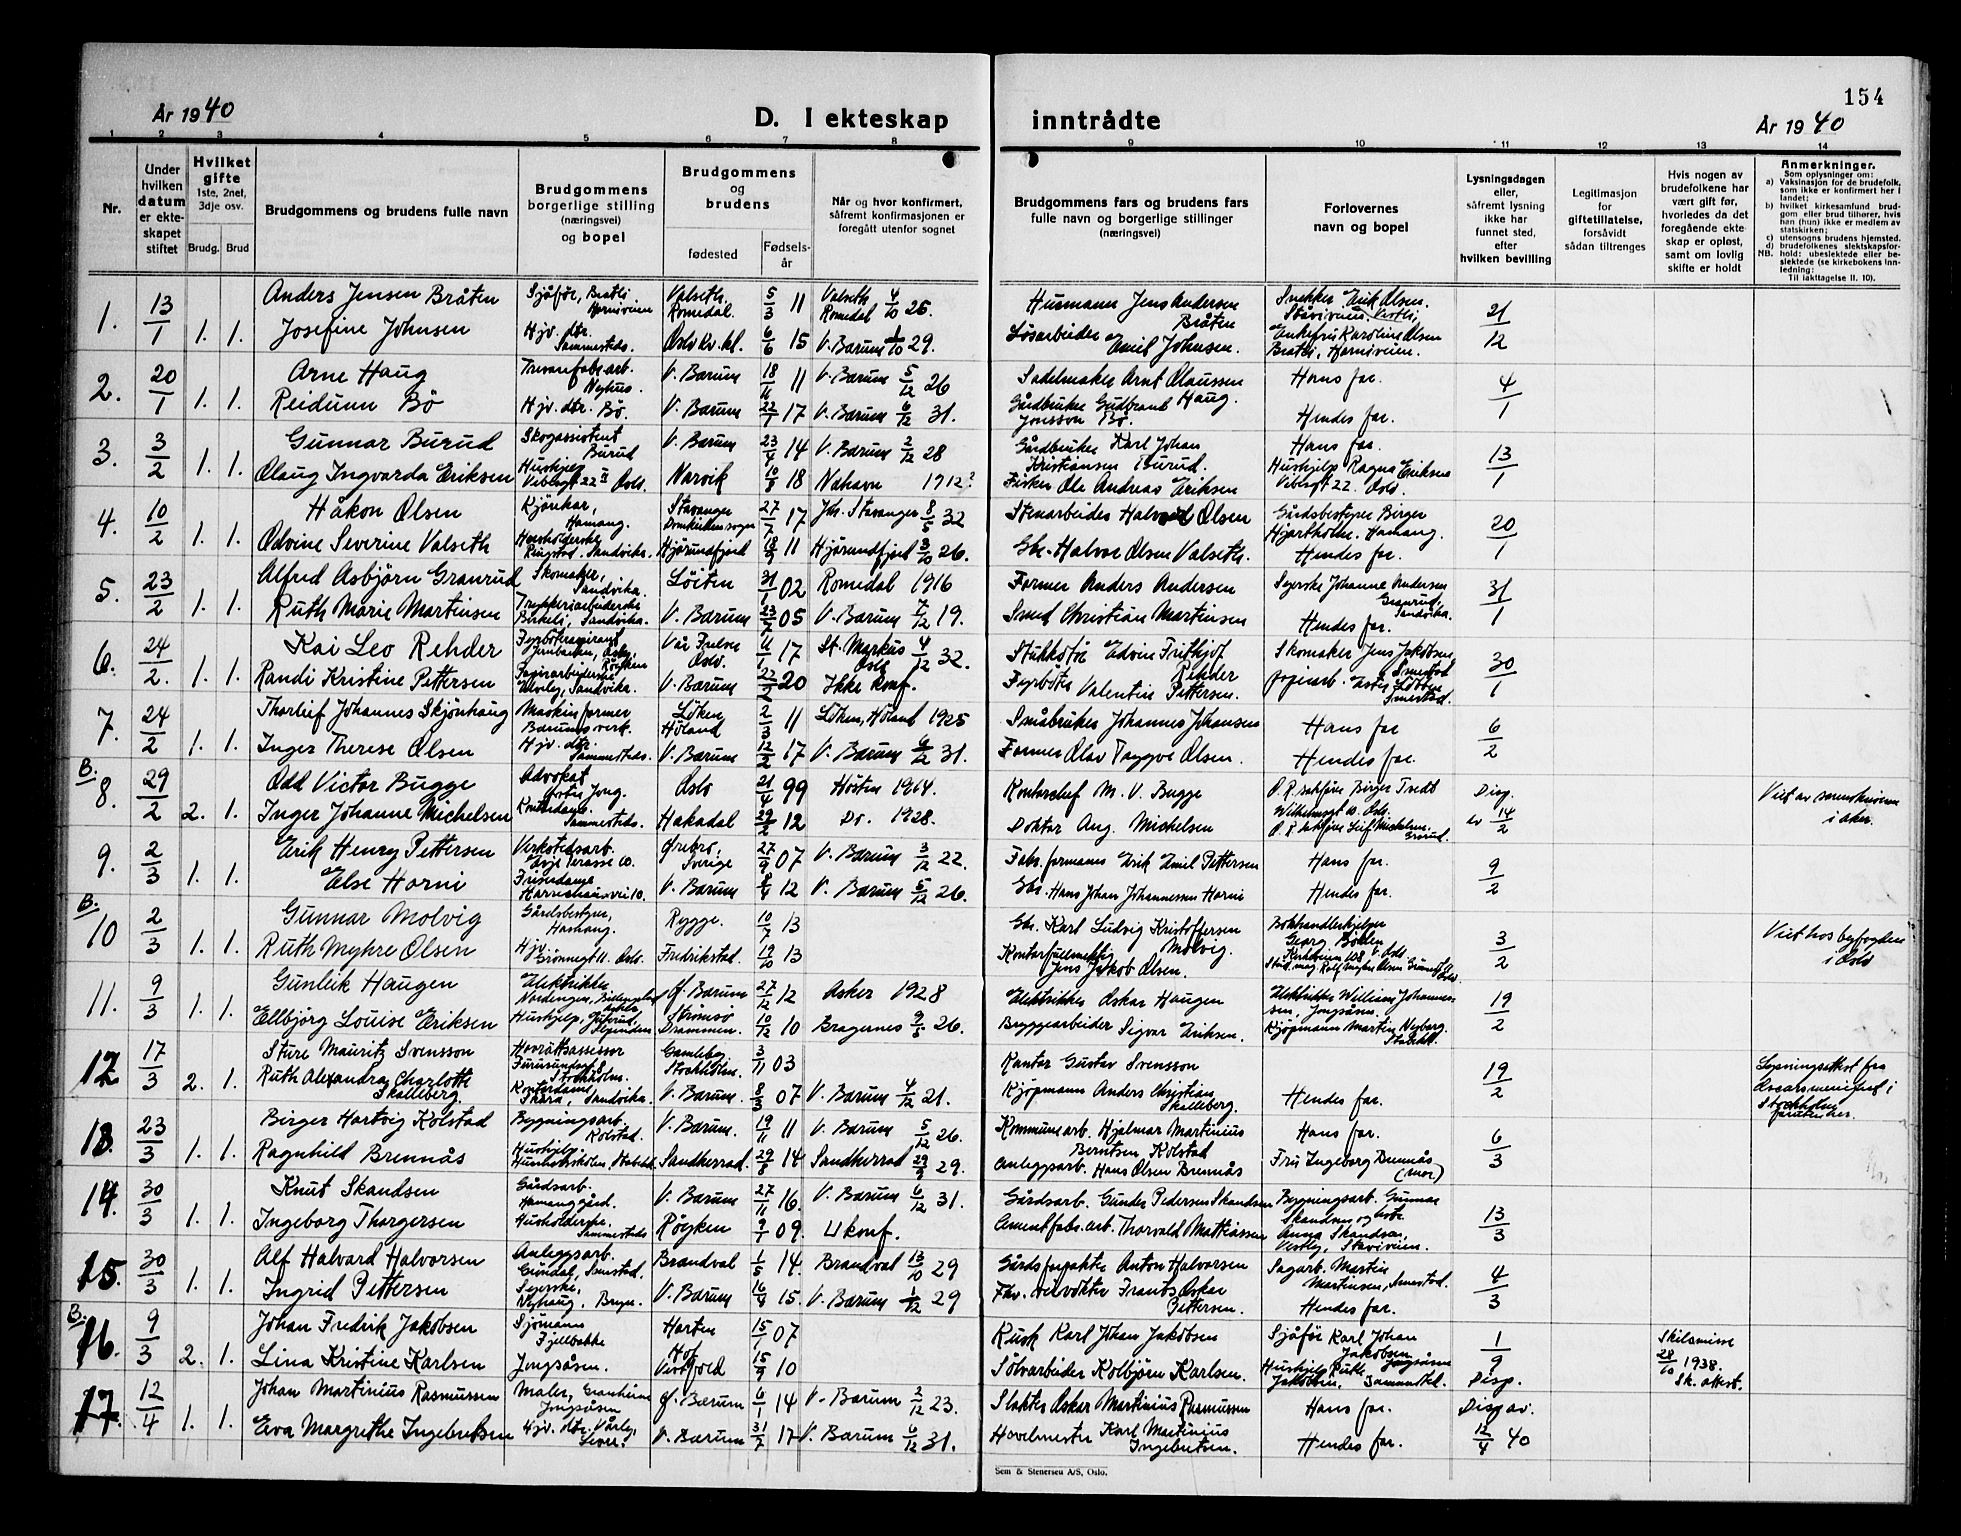 154
År 1940
D. I ekteskap inntrådte
År 1940
1 2 3 4 5 6 7 8 9 10 11 12 13 14
Nr.
Under hvilken datum er ekteskapet stiftet
Hvilket gifte 1ste, 2net, 3dje osv.
Brudg. Brud
Brudgommens og brudens fulle navn
Brudgommens borgerlige stilling (næringsvei) og bopel
Brudgommens og brudens
fødested
Fødselsår
Når og hvor konfirmert, såfremt konfirmasjonen er foregått utenfor sognet
Brudgommens fars og brudens fars fulle navn og borgerlige stillinger (næringsvei)
Forlovernes navn og bopel
Lysningsdagen eller, såfremt lysning ikke har funnet sted, efter hvilken bevilling
Legitimasjon for giftetillatelse, forsåvidt sådan tiltrenges
Hvis nogen av brudefolkene har vært gift før, hvorledes da det foregående ekteskap er opløst, samt om lovlig skifte er holdt
Anmerkninger.
Som oplysninger om:
a) Vaksinasjon for de brudefolk, som ikke er konfirmert her i landet;
b) hvilket kirkesamfund brudgom eller brud tilhører, hvis han (hun) ikke er medlem av statskirken;
c) utensogns brudens hjemsted.
d) brudefolkenes slektskapsforhold: ubeslektede eller beslektede (se kirkebokens innledning:
NB. Til iakttagelse II. 10).
1. 13/1 1. 1. Anders Jensen Bråten Sjåfør, Bratli Valseth Romedal. 5/3 11 Valseth Romedal 4/10 25. Husmann Jens Andersen Bråten Snekker Erik Olsen. 21/12
Josefine Johnsen Hjv. dtr. Sammesteds. Oslo 6/6 15 V. Bærum 1/10 29. Løsarbeider Emil Johnsen. Enkefru Karoline Olsen Bratli,
2. 20/1 1. 1. Arne Haug Nyhus. V. Bærum 18/11 11 V. Bærum 5/12 26 Sadelmaker Arnt Olaussen Haug. Hans far. 4/1
Reidunn Bö Hjv. dtr. Bö. V. Bærum 22/7 17 V. Bærum 6/12 31. Gårdbruker Gudbrand Jonsson Bö. Hendes far.
3. 3/2 1. 1. Gunnar Burud Skogassistent Burud V. Bærum 23/4 14 V. Bærum 2/12 28 Gårdbruker Karl Johan Kristiansen Burud. Hans far. 13/1
Olaug Ingvarda Eriksen Hushjelp Vibesgt 22 II Oslo. Narvik 10/8 18 1912? Fisker Ola Andreas Eriksen Hushjelp Ragna Eriksen Vibesgt 22. Oslo.
4. 10/2 1. 1. Håkon Olsen Hamang. Stavanger Domkirkens sogn 27/7 17 Stavanger 8/5 32 Stenarbeider Halvard Olsen Gårdsbestyrer Birger Hjartholm, Hamang. 20/1
Odvine Severine Valseth Husholderske Ringstad. Sandvika. Hjørundfjord 18/9 11 Hjørundfjord 3/10 26. Gbr. Halvor Olsen Valseth. Hendes far.
5. 23/2 1. 1. Alfred Asbjörn Granrud Skomaker, Sandvika. Löiten 31/1 02 Romedal 1916 Former Anders Andersen Syerske Johanne Andersen Granrud, Sandvika. 31/1
Ruth Marie Martinsen Trykkeriarbeiderske Birkeli, Sandvika. V. Bærum 23/7 05 V. Bærum 7/12 19. Smed Christian Martinsen Hendes far.
6. 24/2. 1. 1. Kai Leo Rehder Vår Frelser Oslo. 11/1 17 St. Markus Oslo 4/12 32. Edvin Fritkjof Rehder Skomaker Jens Jakobsen, 30/1
Randi Kristine Pettersen Sandvika. V. Bærum 22/2 20 Ikke konf. Fyrböter Valentin Pettersen.
7. 24/2 1. 1. Thorlief Johannes Skjönhaug Maskinformer Bærums verk. Löken Höland 2/3 11 Löken, Höland 1925 Småbruker Johannes Johansen Hans far 6/2
Inger Therese Olsen Hjv. dtr. Sammesteds. V. Bærum 12/2 17 V. Bærum 6/12 31. Former Olav Trygve Olsen. Hendes far.
B. 8. 29/2 2. 1. Odd Victor Bugge Advokat Oslo 21/4 99 Høsten 1914. Kontorchef M. V. Bugge O.R. sakfører Birger Tvedt Wilhelmsgt 10. Oslo. Disp. av 14/2 Viet av sorenskriveren i Aker.
Inger Johanne Michelsen Kontordame Sammesteds. Hakadal 29/2 12 Do. 1928. Doktor Aug. Michelsen O.R. sakfører Leif Michelsen
9. 2/3 1. 1. Erik Henry Pettersen Verkstedsarb. Örebro, Sverige 27/9 07 V. Bærum 3/12 22. Fabr. formann Erik Emil Pettersen Hans far. 9/2
Else Horni Frisördame V. Bærum 8/4 12 V. Bærum 5/12 26. Gbr. Hans Johan Johannessen Horni Hendes far.
B. 10 2/3 1. 1. Gunnar Molvig Gårdsbestyrer, Hamang. Rygge. 10/7 13 Gbr. Karl Ludvig Kristoffersen Molvig. Bokhandlerhjelper Georg Oslo 3/2 Viet hos byfogden i Oslo
Ruth Myhre Olsen Hjv. Grönnegt 11. Oslo. Fredrikstad. 19/10 13 Kontorfullmektig Jens Jakob Olsen. Stud. mag. Rolf Myhre Olsen
11. 9/3 1. 1. Gunleik Haugen Elektriker Ö. Bærum 27/12 12 Asker 1928 Elektriker Oskar Haugen Elektriker William Johannessen, Jongsåsen. 19/2
Ellbjörg Louise Eriksen Hushjelp, Strømsö Drammen. 10/12 10 Bragernes 9/5 26. Bryggearbeider Sigvar Eriksen. Kjøpmann Martin Nyberg. Stabekk.
12 17/3 2. 1. Sture Mauritz Svensson Hovrättsassessor Furusundsg. Stockholm. Gamleby Stockholm. 3/11 03 Kantor Gustav Svensson 19/2 Lysningsattest fra Oscarsmenighet i Stockholm
Ruth Alexandra Charlotte Skalleberg. Kontordame Skara, Sandvika. V. Bærum. 8/3 07 V. Bærum 4/12 21. Kjøpmann Anders Christian Skalleberg. Hendes far.
13. 23/3 1. 1. Birger Hartvig Kolstad Bygningsarb. Kolstad. V. Bærum. 19/11 11 V. Bærum 5/12 26. Kommunearb. Hjalmar Martinius Berntsen Kolstad Hans far. 6/3
Ragnhild Brennås Hushjelp. Sandherred. 29/8 14 Sandherred 29/9 29. Anleggsarb. Hans Olsen Brennås Fru Ingeborg Brennås (mor)
14. 30/3 1. 1. Knut Skandsen Gårdsarb. Hamang gård. V. Bærum 27/11 16. V. Bærum 6/12 31. Gårdsarb. Gunder Pedersen Skandsen Bygningsarb. Gunnar Skandsen og 13/3
Ingeborg Thorgersen Husholderske. Sammesteds Röyken 9/7 09. Ukonf. Thorvald Mathiassen Anna Skandsen, Vestly, Staviveien.
15. 30/3 1. 1. Alf Halvard Halvorsen Anleggsarb. Brandval 1/5 14. Brandval 13/10 29 Gårdsforpakter Anton Halvorsen Sagarb. Martin Martinsen, 4/3
Ingrid Pettersen Syerske, Nyhaug, V. Bærum 16/4 15. V. Bærum 1/12 29 Frants Oskar Pettersen. Hendes far.
B. 16. 9/3 2. 1. Johan Fredrik Jakobsen Sjömann Fjellbakke Horten 15/1 07 Kusk Karl Johan Jakobsen Sjåför Karl Johan Jakobsen Jongsåsen 1/9 Skilsmisse 28/10 1938. Sk. attest.
Lina Kristine Karlsen Jongsåsen. Hof Vestfold 15/9 10 Sölvarbeider Kolbjörn Karlsen. Hushjelp Ruth Jakobsen, Disp.
17. 12/4 1. 1. Johan Martinius Rasmussen Maler, Granheim Jongsåsen Ö. Bærum 6/1 14 V. Bærum 2/12 23. Slakter Oskar Martinius Rasmussen Hans far. Disp av.
Eva Margrethe Ingebretsen Hjv. dtr. V. Bærum 31/7 17 V. Bærum 6/12 31. Hovelmester Karl Martinius Ingebretsen. Hendes far. 12/4 40
Sem & Stenersen A/S, Oslo.